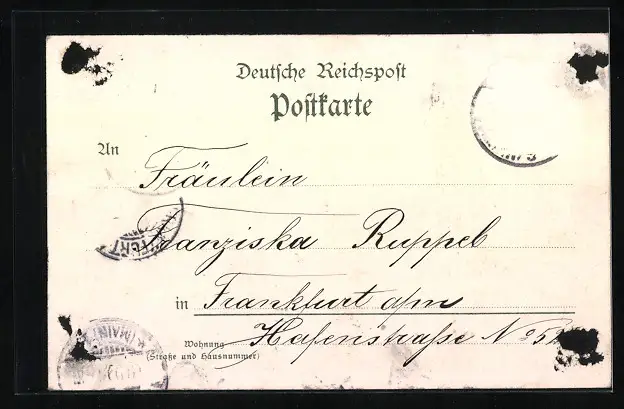 Deutsche Reichspost
Postkarte
An
Fräulein
Franziska Ruppel
in Frankfurt a/m
Wohnung Hafenstraße No 5
(Straße und Hausnummer)
(MAIN)